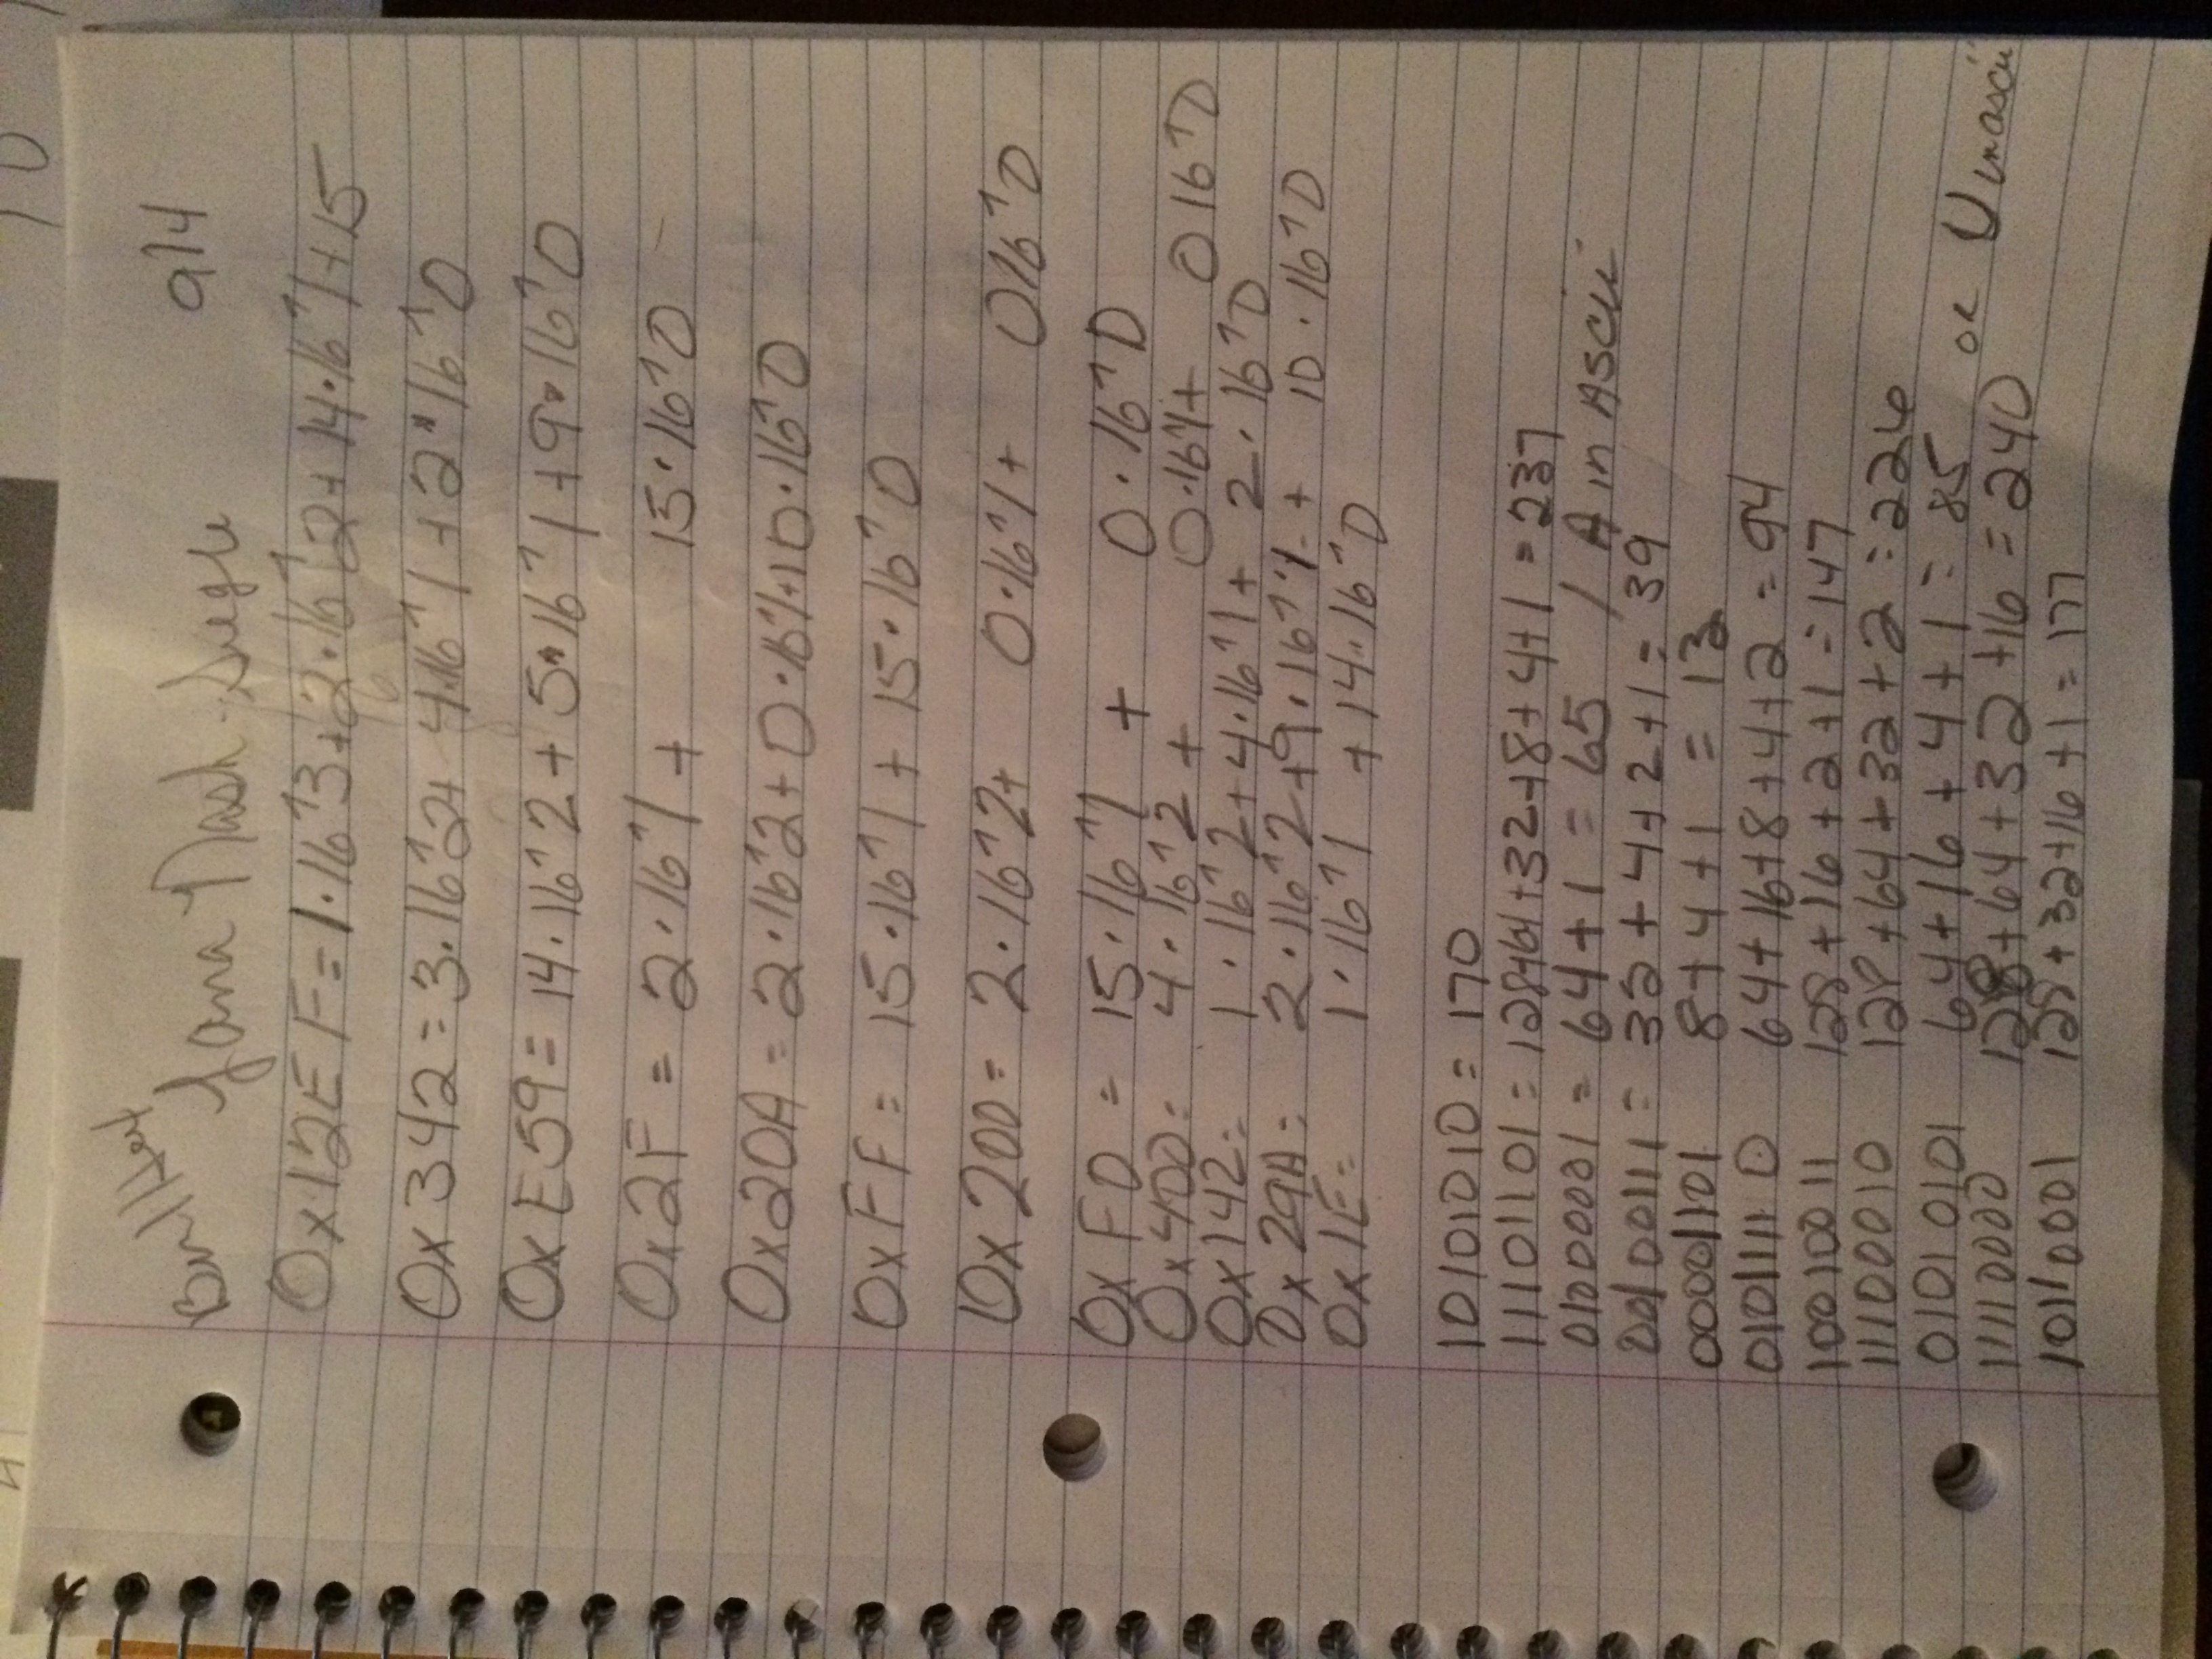 Bin/Hex 9/4
0x12EF = 1·16^3+2·16^2+14·16^1+15
0x342 = 3·16^2+ 4·16^1+2·16^0
0xE59 = 14·16^2+5·16^1+9·16^0
0x2F = 2·16^1+ 15·16^0
0x20A = 2·16^2+0·16^1+10·16^0
0xFF = 15·16^1+15·16^0
0x200 = 2·16^2+ 0·16^1+ 016^0
0xF0 = 15·16^1 + 0·16^0
0x400= 4·16^2 + 0·16^1+ 016^0
0x142= 1·16^2+4·16^1+ 2·16^0
0x29A= 2·16^2+9·16^1+ 10·16^0
0x1E= 1·16^1 +14·16^0
10101010 = 170
11101101 = 128+64+32+8+4+1 = 237
01000001 = 64+1 = 65 / A in ASCII
00100111 = 32+4+2+1= 39
00001101 8+4+1 = 13
01011110 64+16+8+4+2 = 94
10010011 128+16+2+1=147
11100010 128+64+32+2=226
01010101 64+16+4+1=85 or U in ascii
11110000 128+64+32+16=240
10110001 128+32+16+1=177